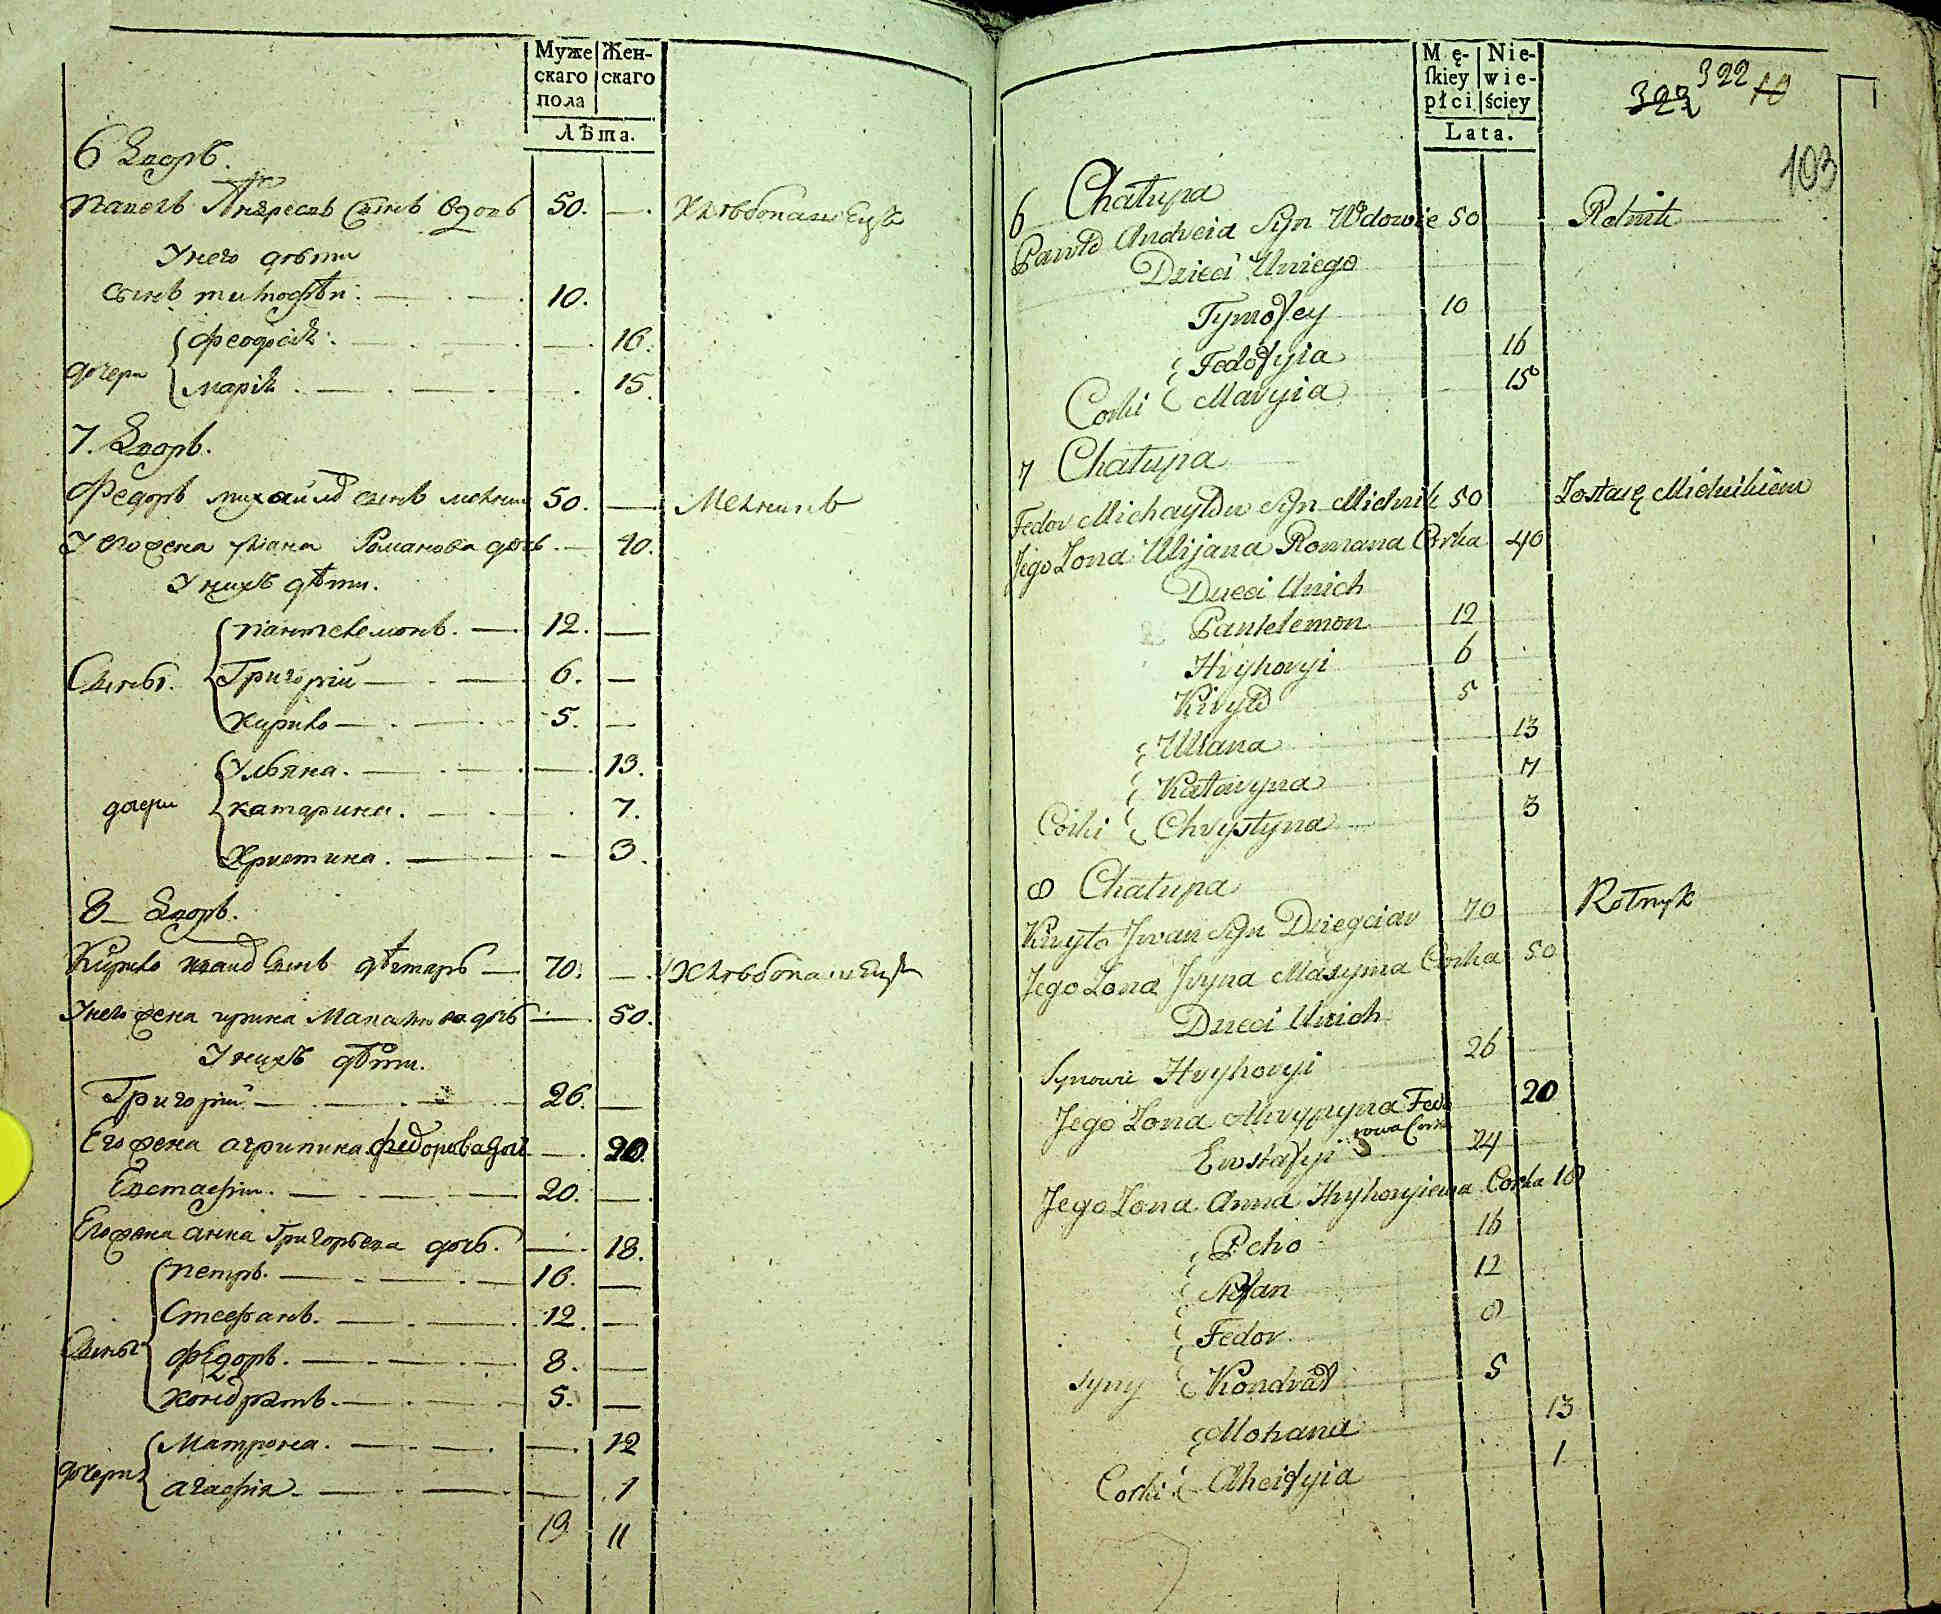 Муже Жен-
скаго скаго
пола
Лѣта.
6 Дворъ.
Павелъ Андреевъ Сынъ вдовъ 50. Хлѣбопашецъ
У него дѣти
Сынъ тимофѣй 10.
Феодосія 16.
дочери
марія 15.
7. Дворъ.
Федоръ михайлов сынъ мелник 50. Мелникъ
У его жена уляна Романова дочь 40.
У нихъ дѣти.
Пантелемонъ. 12.
Сыны. Григорій 6.
Кирило 5.
Ульяна. 13.
дочери катарина. 7.
Христина. 3.
8 Дворъ.
Кирило иванов Сынъ дѣгтаръ 70. Хлѣбопашецъ
У него жена ирина дочь 50.
У нихъ дѣти.
Григорій 26.
Его жена агрипина федорова дочь 20.
Евстафій. 20.
Его жена анна Григорьева дочь. 18.
петръ. 16.
Стефанъ. 12.
Сыны
Федоръ. 8.
кондратъ. 5.
Матрона. 12
дочери
агафія 1
19 11
Mę- Nie-
ſkiey wie-
płci ściey
Lata.
322 322 10
103
6 Chałupa
Pawło Andreia Syn Wdowie 50 Rolnik
Dzieci Uniego
Tymofey 10
Fedosyia 16
Corki Maryia 15
7 Chałupa
Fedor Michayłow Syn Mielnik 50 Zostaię Mielnikiem
Jego Zona Uljana Romana Corka 40
Dzieci Unich
Pantelemon 12
Hryhoryi 6
Kiryło 5
Ulana 13
Kataryna 7
Corki Chrystyna 3
8 Chałupa
Kiryło Jwan Syn Dziegciar 70 Rolnyk
Jego Zona Jryna Maxyma Corka 50
Dzieci Unich
Synowie Hryhoryi 26
Jego Zona Fedo 20
rowa Corka
Ewstafyi 24
Jego Zona Anna Hryhoryiewa Corka 18
Petro 16
Stefan 12
Fedor 8
Syny Kondrat 5
13
Corki 1